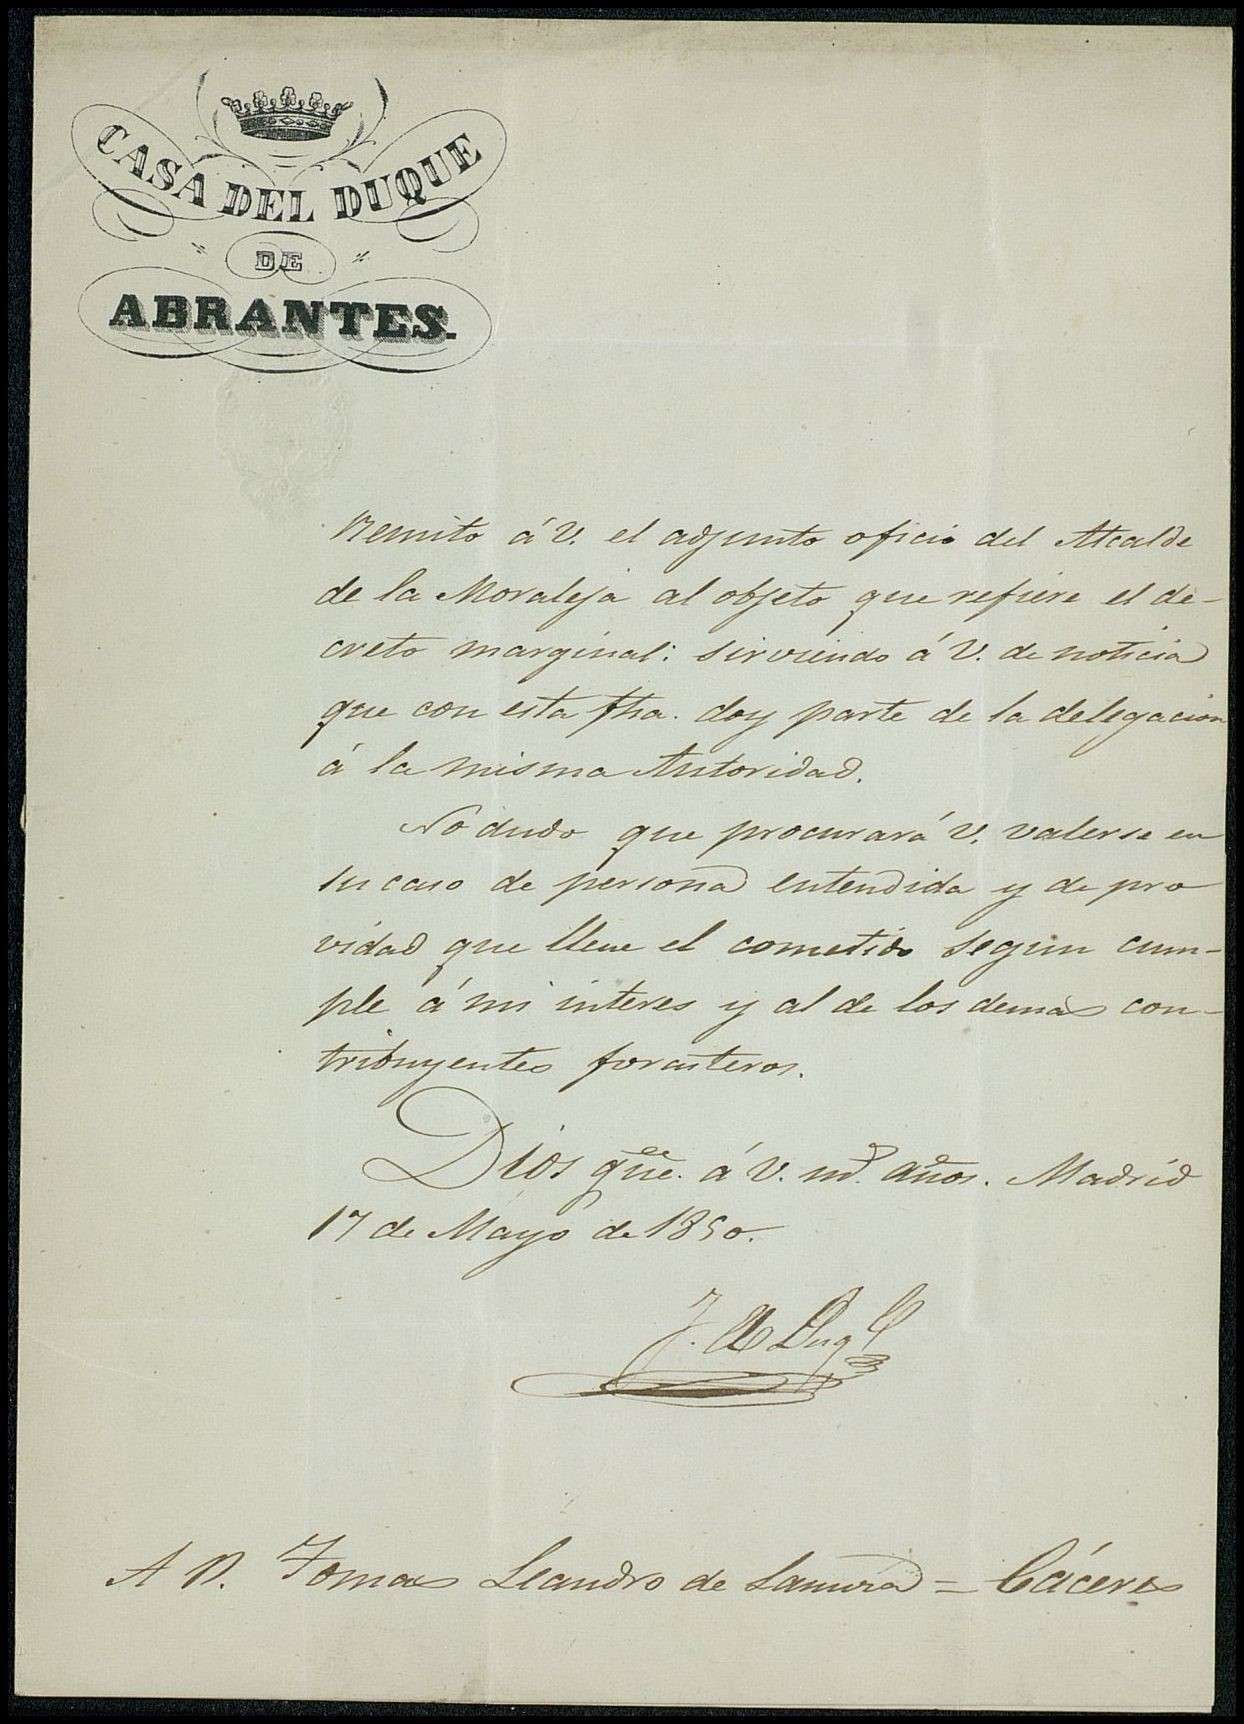 CASA DEL DUQUE
DE
ABRANTES.
Remito á V. el adjunto oficio del Alcalde
de la Moraleja al objeto que refiere el de-
creto marginal: sirviendo á V. de noticia
que con esta fha. doy parte de la delegacion
á la misma Autoridad.
No dudo que procurará V. valerse en
su caso de persona entendida y de pro
vidad que lleve el cometido segun cum-
ple á mi interes y al de los demas con-
tribuyentes forasteros.
Dios gue. á V. ms. años. Madrid
17 de Mayo de 1850.
A D. Tomas Leandro de = Cáceres